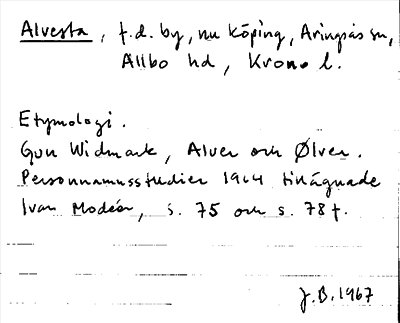 Alvesta, f.d. by, nu köping, Aringsås sn,
Allbo hd, Krono l.
Etymologi.
Gun Widmark, Alver och Ølver.
Personnamnsstudier 1964 tillägnade
Ivar Modéer, s. 75 och s. 78 f.
J.B. 1967